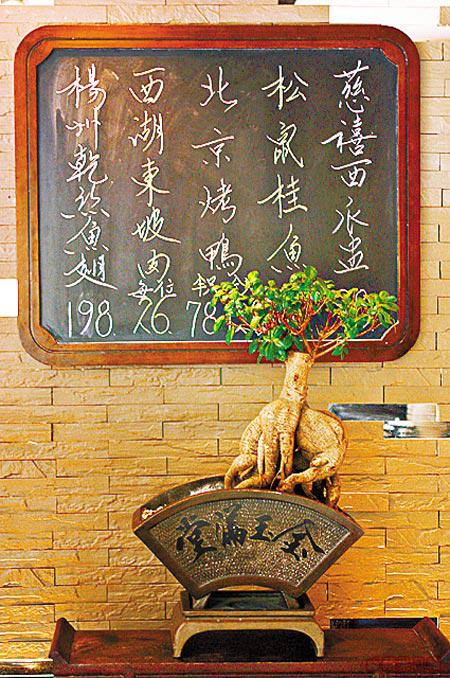 慈禧西瓜盅
松鼠桂魚
北京烤鴨 78
西湖東坡肉 每位 76.
楊州乾煎魚翅 198
金玉滿堂